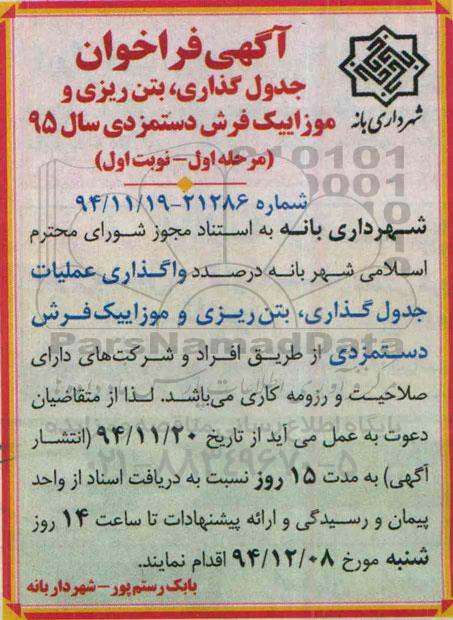 آگهی فراخوان
جدول گذاری، بتن ریزی و
موزاییک فرش دستمزدی سال ۹۵
(مرحله اول – نوبت اول)
شهرداری بانه
شماره ۲۱۲۸۶-۹۴/۱۱/۱۹
شهرداری بانه به استناد مجوز شورای محترم
اسلامی شهر بانه درصدد واگذاری عملیات
جدول گذاری، بتن ریزی و موزاییک فرش
دستمزدی از طریق افراد و شرکت‌های دارای
صلاحیت و رزومه کاری می‌باشد. لذا از متقاضیان
دعوت به عمل می آید از تاریخ ۹۴/۱۱/۲۰ (انتشار
آگهی) به مدت ۱۵ روز نسبت به دریافت اسناد از واحد
پیمان و رسیدگی و ارائه پیشنهادات تا ساعت ۱۴ روز
شنبه مورخ ۹۴/۱۲/۰۸ اقدام نمایند.
بابک رستم پور – شهردار بانه
ParsNamadData
۰۲۱-۸۸۳۴۹۶۷۰-۵